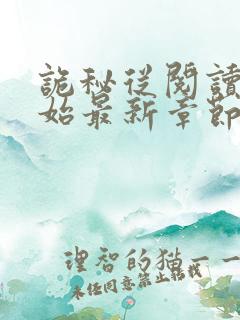 詭秘從閱讀
始最新章節
理智的猫一一
未经同意禁止转载